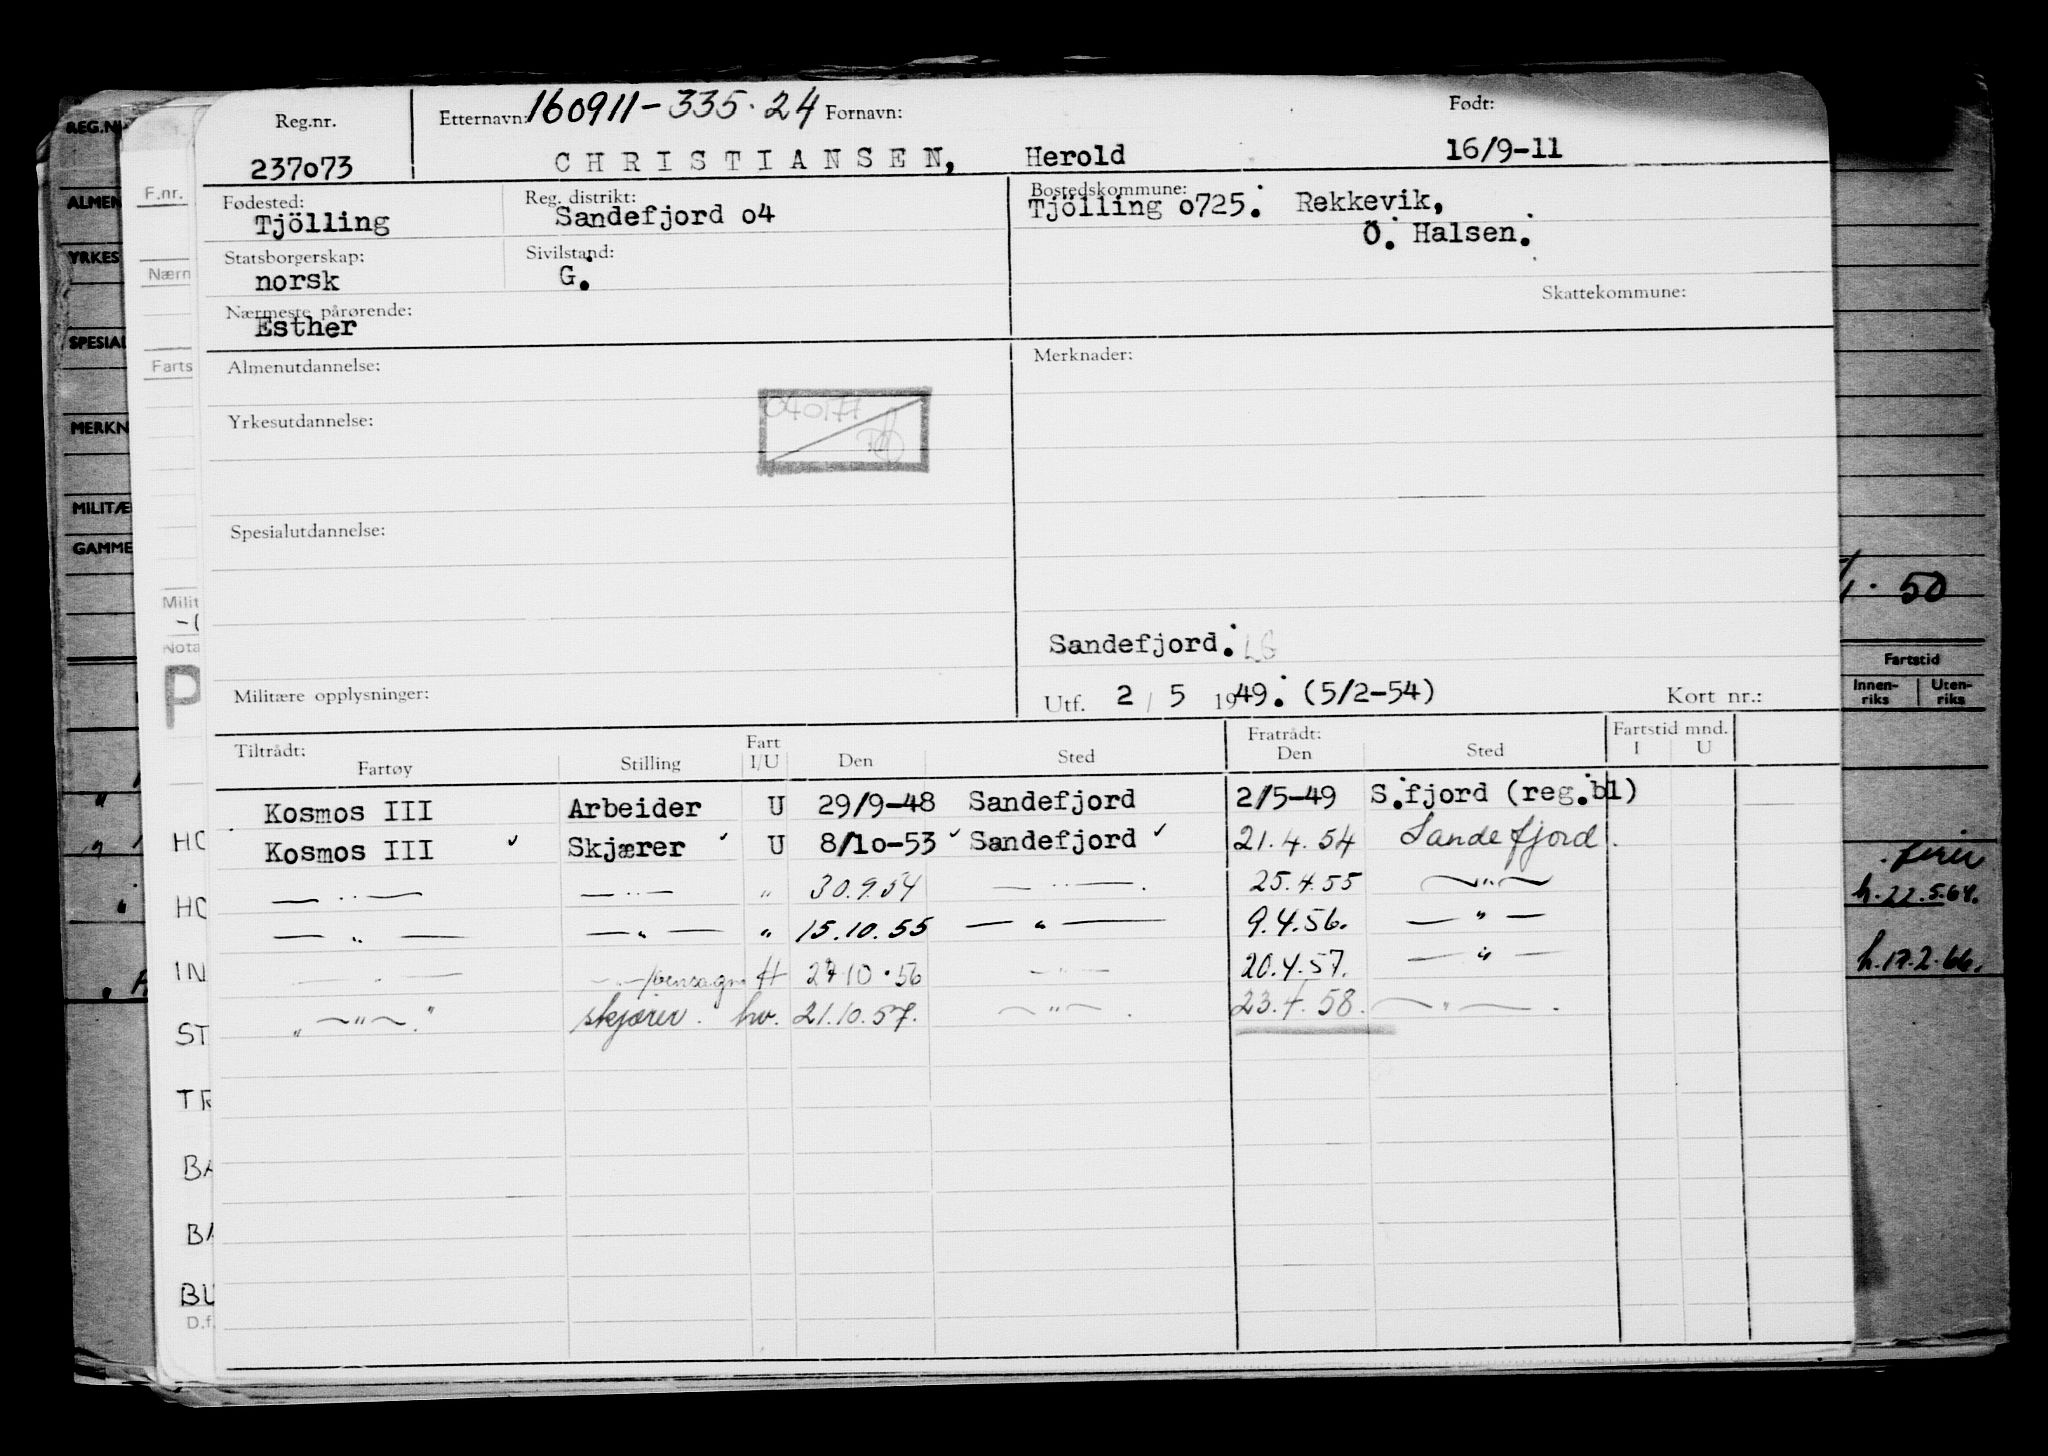 Reg.nr. Etternavn: 160911-335.24 Fornavn: Født:
237o73 CHRISTIANSEN, Herold 16/9-11
Fødested: Reg. distrikt: Bostedskommune:
Tjölling Sandefjord o4 Tjölling o725. Rekkevik,
Ö. Halsen.
Statsborgerskap: Sivilstand:
norsk G.
Skattekommune:
Nærmeste pårørende:
Esther
Almenutdannelse: Merknader:
040177
Yrkesutdannelse:
Spesialutdannelse:
Sandefjord. LG
Militære opplysninger: Utf. 2 / 5 1949. (5/2-54) Kort nr.:
Tiltrådt: Fart Fratrådt: Fartstid mnd.
Fartøy Stilling I/U Den Sted Den Sted I U
Kosmos III Arbeider U 29/9-48 Sandefjord 2/5-49 S.fjord (reg.bl)
Kosmos III ✓ Skjærer ✓ U 8/1o-53 ✓ Sandefjord ✓ 21.4.54 Sandefjord.
— " — — " — " 30.9.54 — " —. 25.4.55 — " —
— " — — " — " 15.10.55 — " — 9.4.56. — " —
— " — 27 10.56 — " — 20.4.57. — " —
" — " — " skjærer. hv. 21.10.57. — " —. 23.4.58. — " —.
REG.NR
ALMEN
YRKES
SPESIAL
MERKN
MILITÆ
GAMME
F.nr.
Nærn
Farts
Milit
Nota
P
HO
HO
IN
ST
TR
BA
BA
BU
D.f.
50
Fartstid
Innen-riks Uten-riks
h.22.5.64.
h.17.2.66.